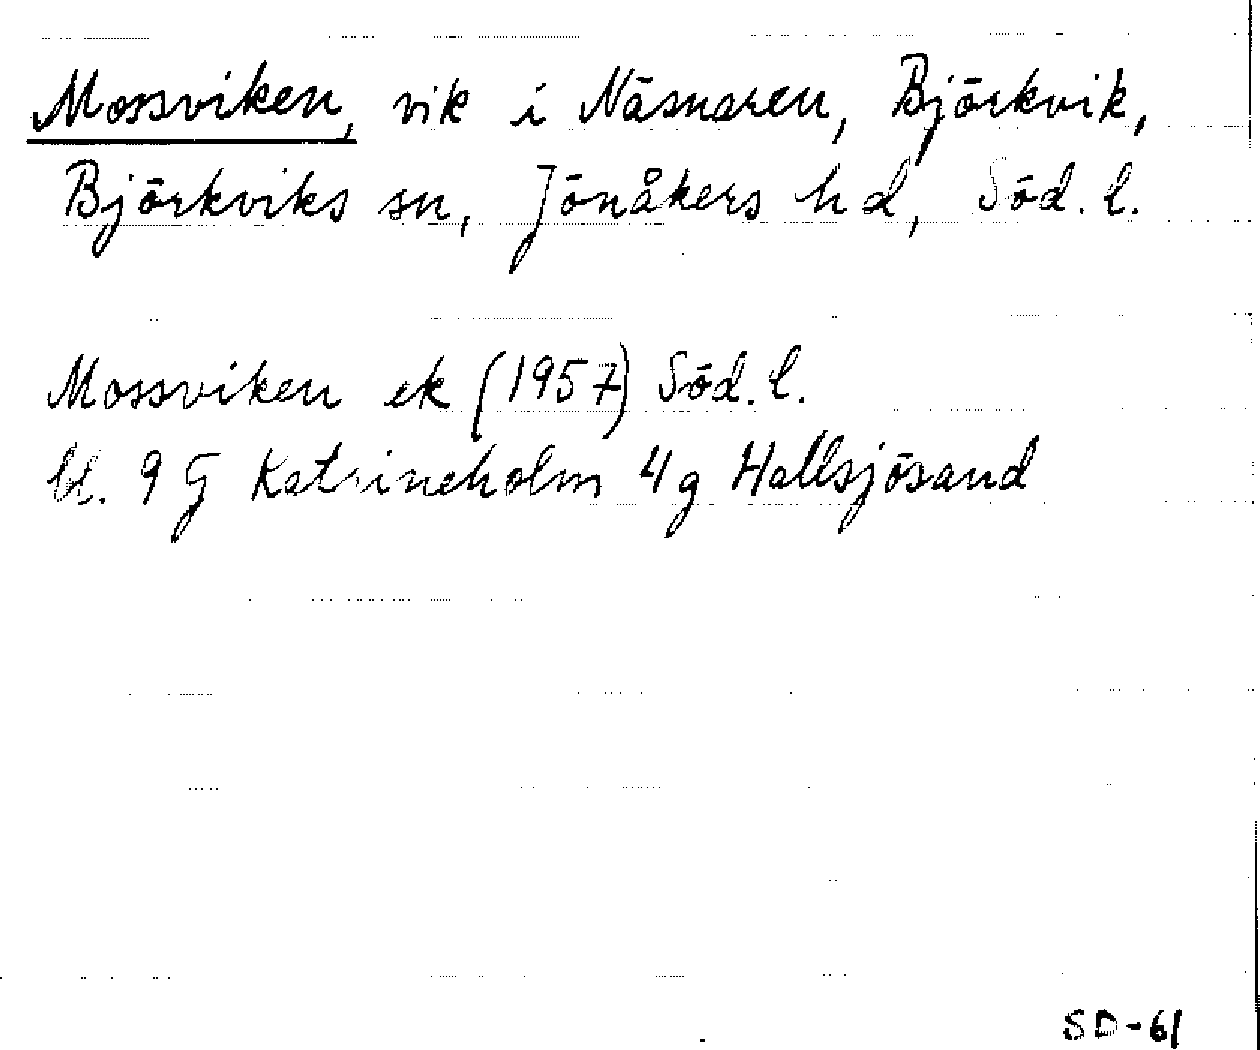 Mossviken, vik i Näsnaren, Björkvik,
Björkviks sn, Jönåkers hd, Söd. l.
Mossviken ek (1957) Söd. l.
bl. 9 G Katrineholm 4g Hallsjösand
SD-61